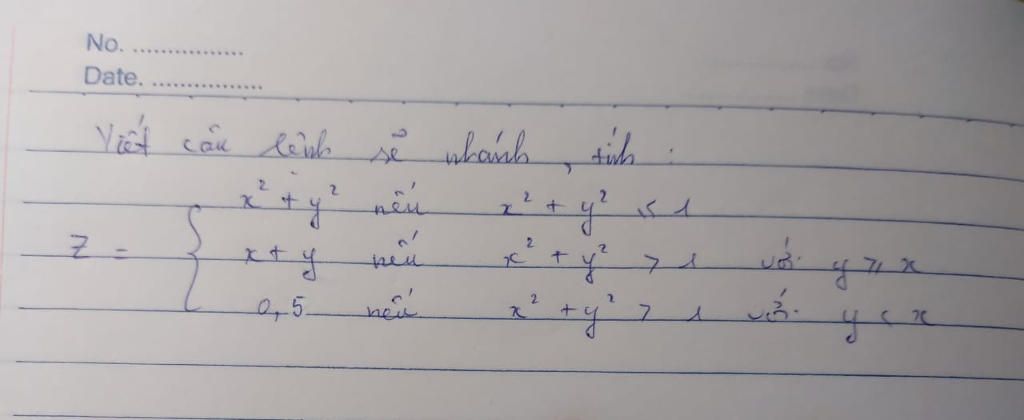 No. ................
Date. ................
Viết câu lệnh rẽ nhánh, tính :
x² + y² nếu x² + y² ≤ 1
Z = { x + y nếu x² + y² > 1 với y ≥ x
0,5 nếu x² + y² > 1 với y < x